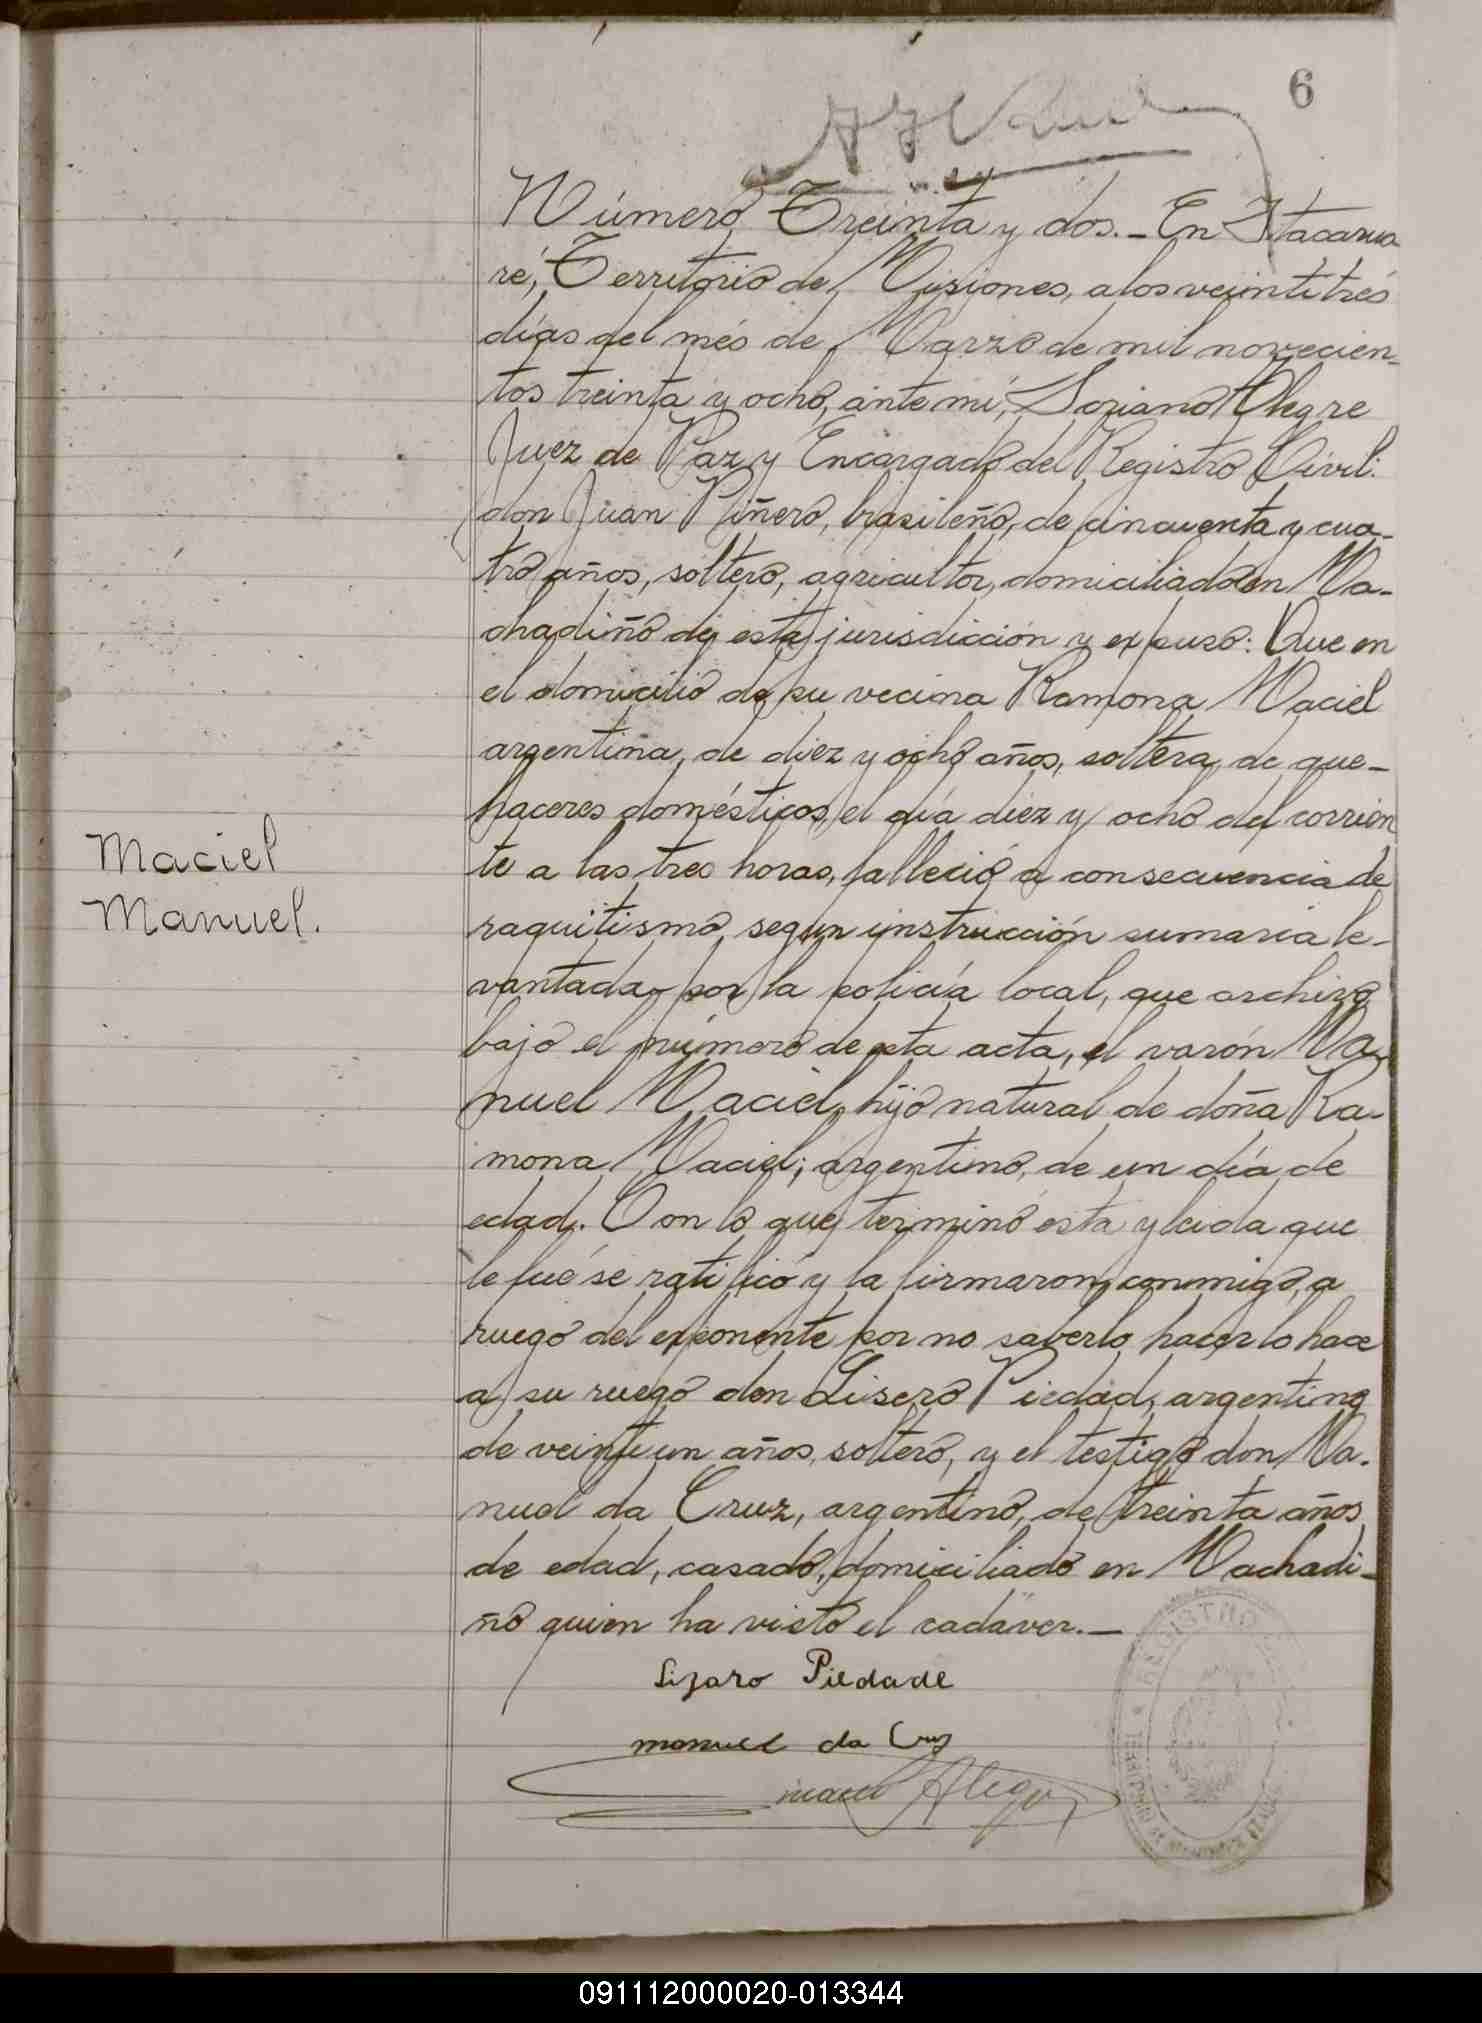 6
Número Treinta y dos.- En Itacarua
ré, Territorio de Misiones, a los veintitrés
días del més de Marzo de mil novecien-
tos treinta y ocho, ante mí, Soriano Alegre
Juez de Paz y Encargado del Registro Civil:
don Juan Piñero, brasileño, de cincuenta y cua-
tro años, soltero, agricultor, domiciliado en Ma-
chadiño de esta jurisdicción y expuso: Que en
el domicilio de su vecina Ramona Maciel
argentina, de diez y ocho años, soltera, de que-
haceres domésticos, el día diez y ocho del corrien
te a las tres horas, falleció a consecuencia de
Maciel
raquitismo, segun instrucción sumaria le-
Manuel.
vantada por la policía local, que archivo
bajo el número de esta acta, el varón Ma-
nuel Maciel, hijo natural de doña Ra-
mona Maciel; argentino, de un día de
edad. Con lo que terminó esta y leida que
le fué se ratificó y la firmaron conmigo, a
ruego del exponente por no saberlo hacer lo hace
a su ruego don Lisero Piedad, argentino
de veintiun años, soltero, y el testigo don Ma-
nuel da Cruz, argentino, de treinta años
de edad, casado, domiciliado en Machadi-
ño quien ha visto el cadáver.-
Lizaro Piedade
manuel da Cruz
Alegre
REGISTRO
091112000020-013344